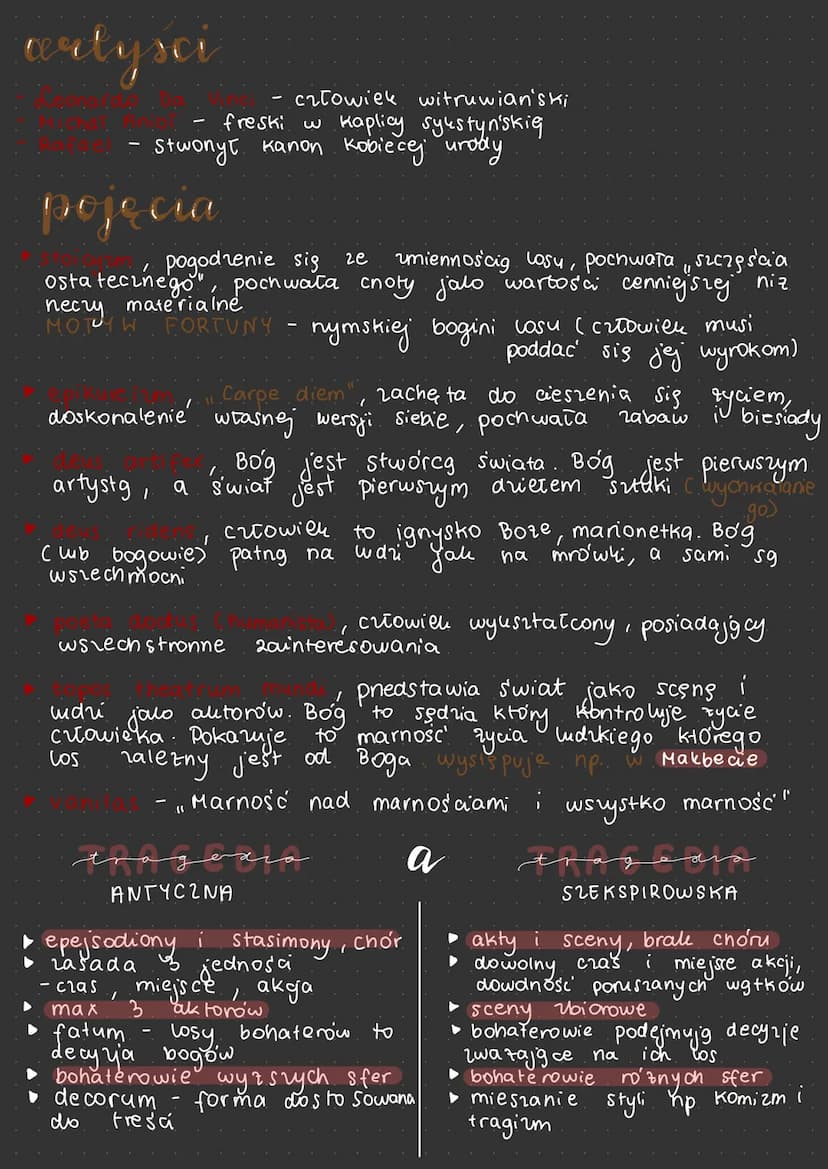 artyści
- Leonardo Da Vinci - człowiek witruwiański
- Michał Anioł - freski w kaplicy sykstyńskię
- Rafael - stworzył kanon kobiecej urody
pojęcia
stoicyzm, pogodzenie się ze zmiennością losu, pochwała „szczęścia
ostatecznego", pochwała cnoty jako wartości cenniejszej niż
rzeczy materialne
MOTYW FORTUNY - rzymskiej bogini losu (człowiek musi
poddać się jej wyrokom)
epikureizm, „Carpe diem", zachęta do cieszenia się życiem,
doskonalenie własnej wersji siebie, pochwała zabaw i biesiady
deus artifex, Bóg jest stwórcą świata. Bóg jest pierwszym
artystą, a świat jest pierwszym dziełem sztuki (wychwalanie
go)
deus ridens, człowiek to igrzysko Boże, marionetka. Bóg
(lub bogowie) patrzą na ludzi jak na mrówki, a sami są
wszechmocni
poeta doctus (humanista), człowiek wykształcony, posiadający
wszechstronne zainteresowania
topos theatrum mundi, przedstawia świat jako scenę i
ludzi jako aktorów. Bóg to sędzia który kontroluje życie
człowieka. Pokazuje to marność życia ludzkiego którego
los zależny jest od Boga. występuje np. w Makbecie
vanitas - „Marność nad marnościami i wszystko marność"
TRAGEDIA tragedia a TRAGEDIA tragedia
ANTYCZNA SZEKSPIROWSKA
epejsodiony i stasimony, chór
zasada 3 jedności
- czas, miejsce, akcja
max 3 aktorów
fatum - losy bohaterów to
decyzja bogów
bohaterowie wyższych sfer
decorum - forma dostosowana
do treści
akty i sceny, brak chóru
dowolny czas i miejsce akcji,
dowolność poruszanych wątków
sceny zbiorowe
bohaterowie podejmują decyzje
zważające na ich los
bohaterowie różnych sfer
mieszanie styli np komizm i
tragizm